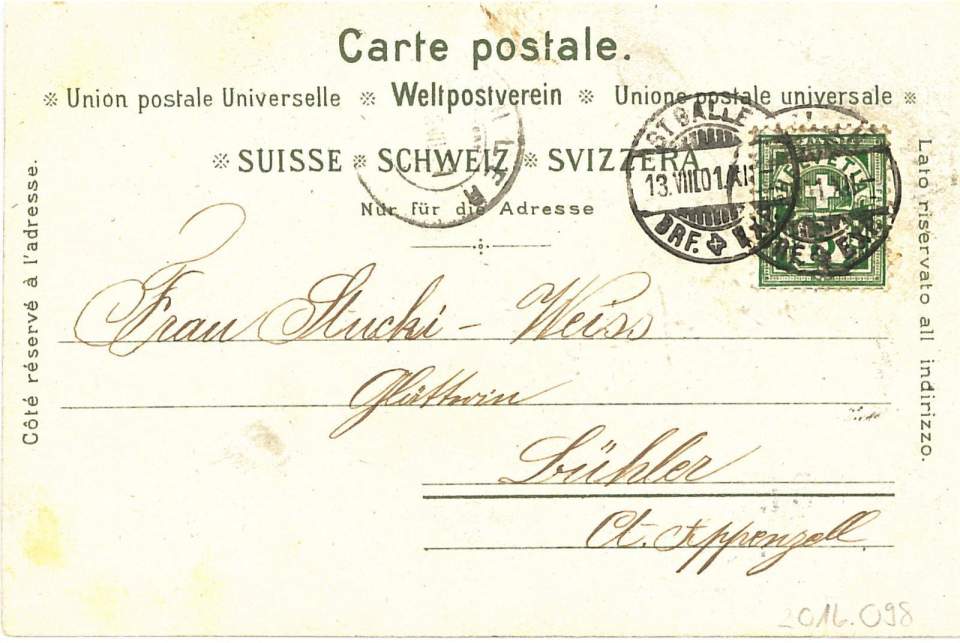 Carte postale.
※ Union postale Universelle ※ Weltpostverein ※ Unione postale universale ※
※ SUISSE ※ SCHWEIZ ※ SVIZZERA
Nur für die Adresse
Côté réservé à l'adresse.
Lato riservato all indirizzo.
ST. GALLEN
13.VIII.01.XII
BRF.
HELVETIA
Frau Stucki - Weiss
Glättrin
Bühler
Ct. Appenzell
2016.098